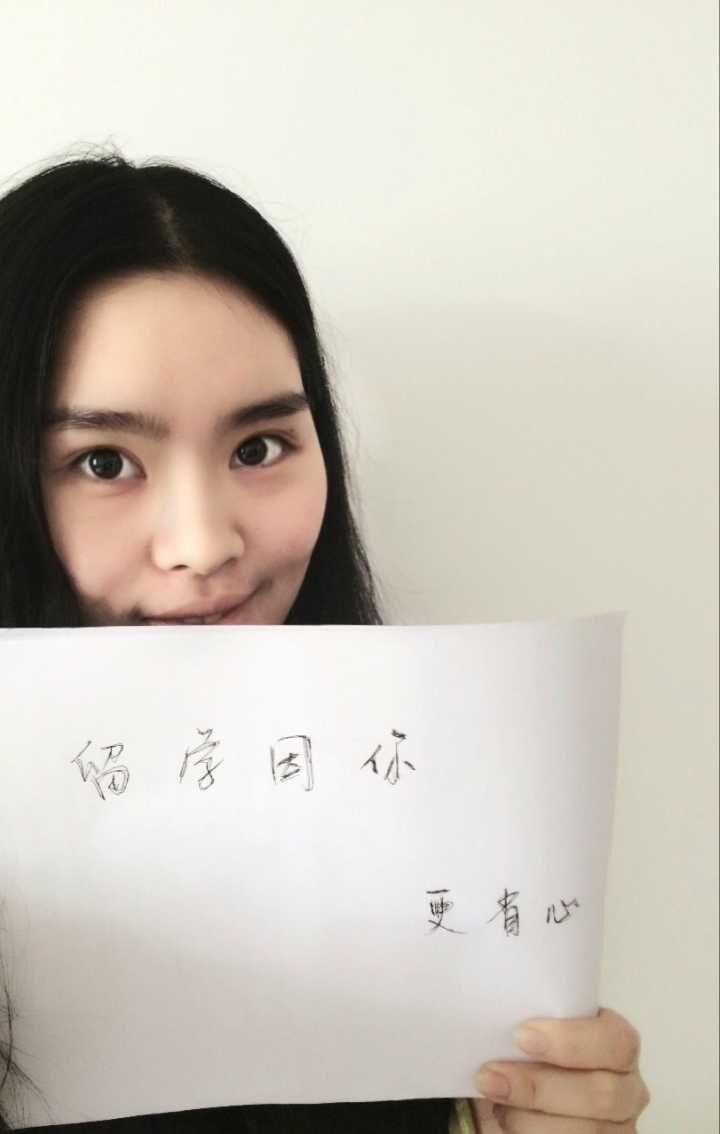 留学因你
更省心